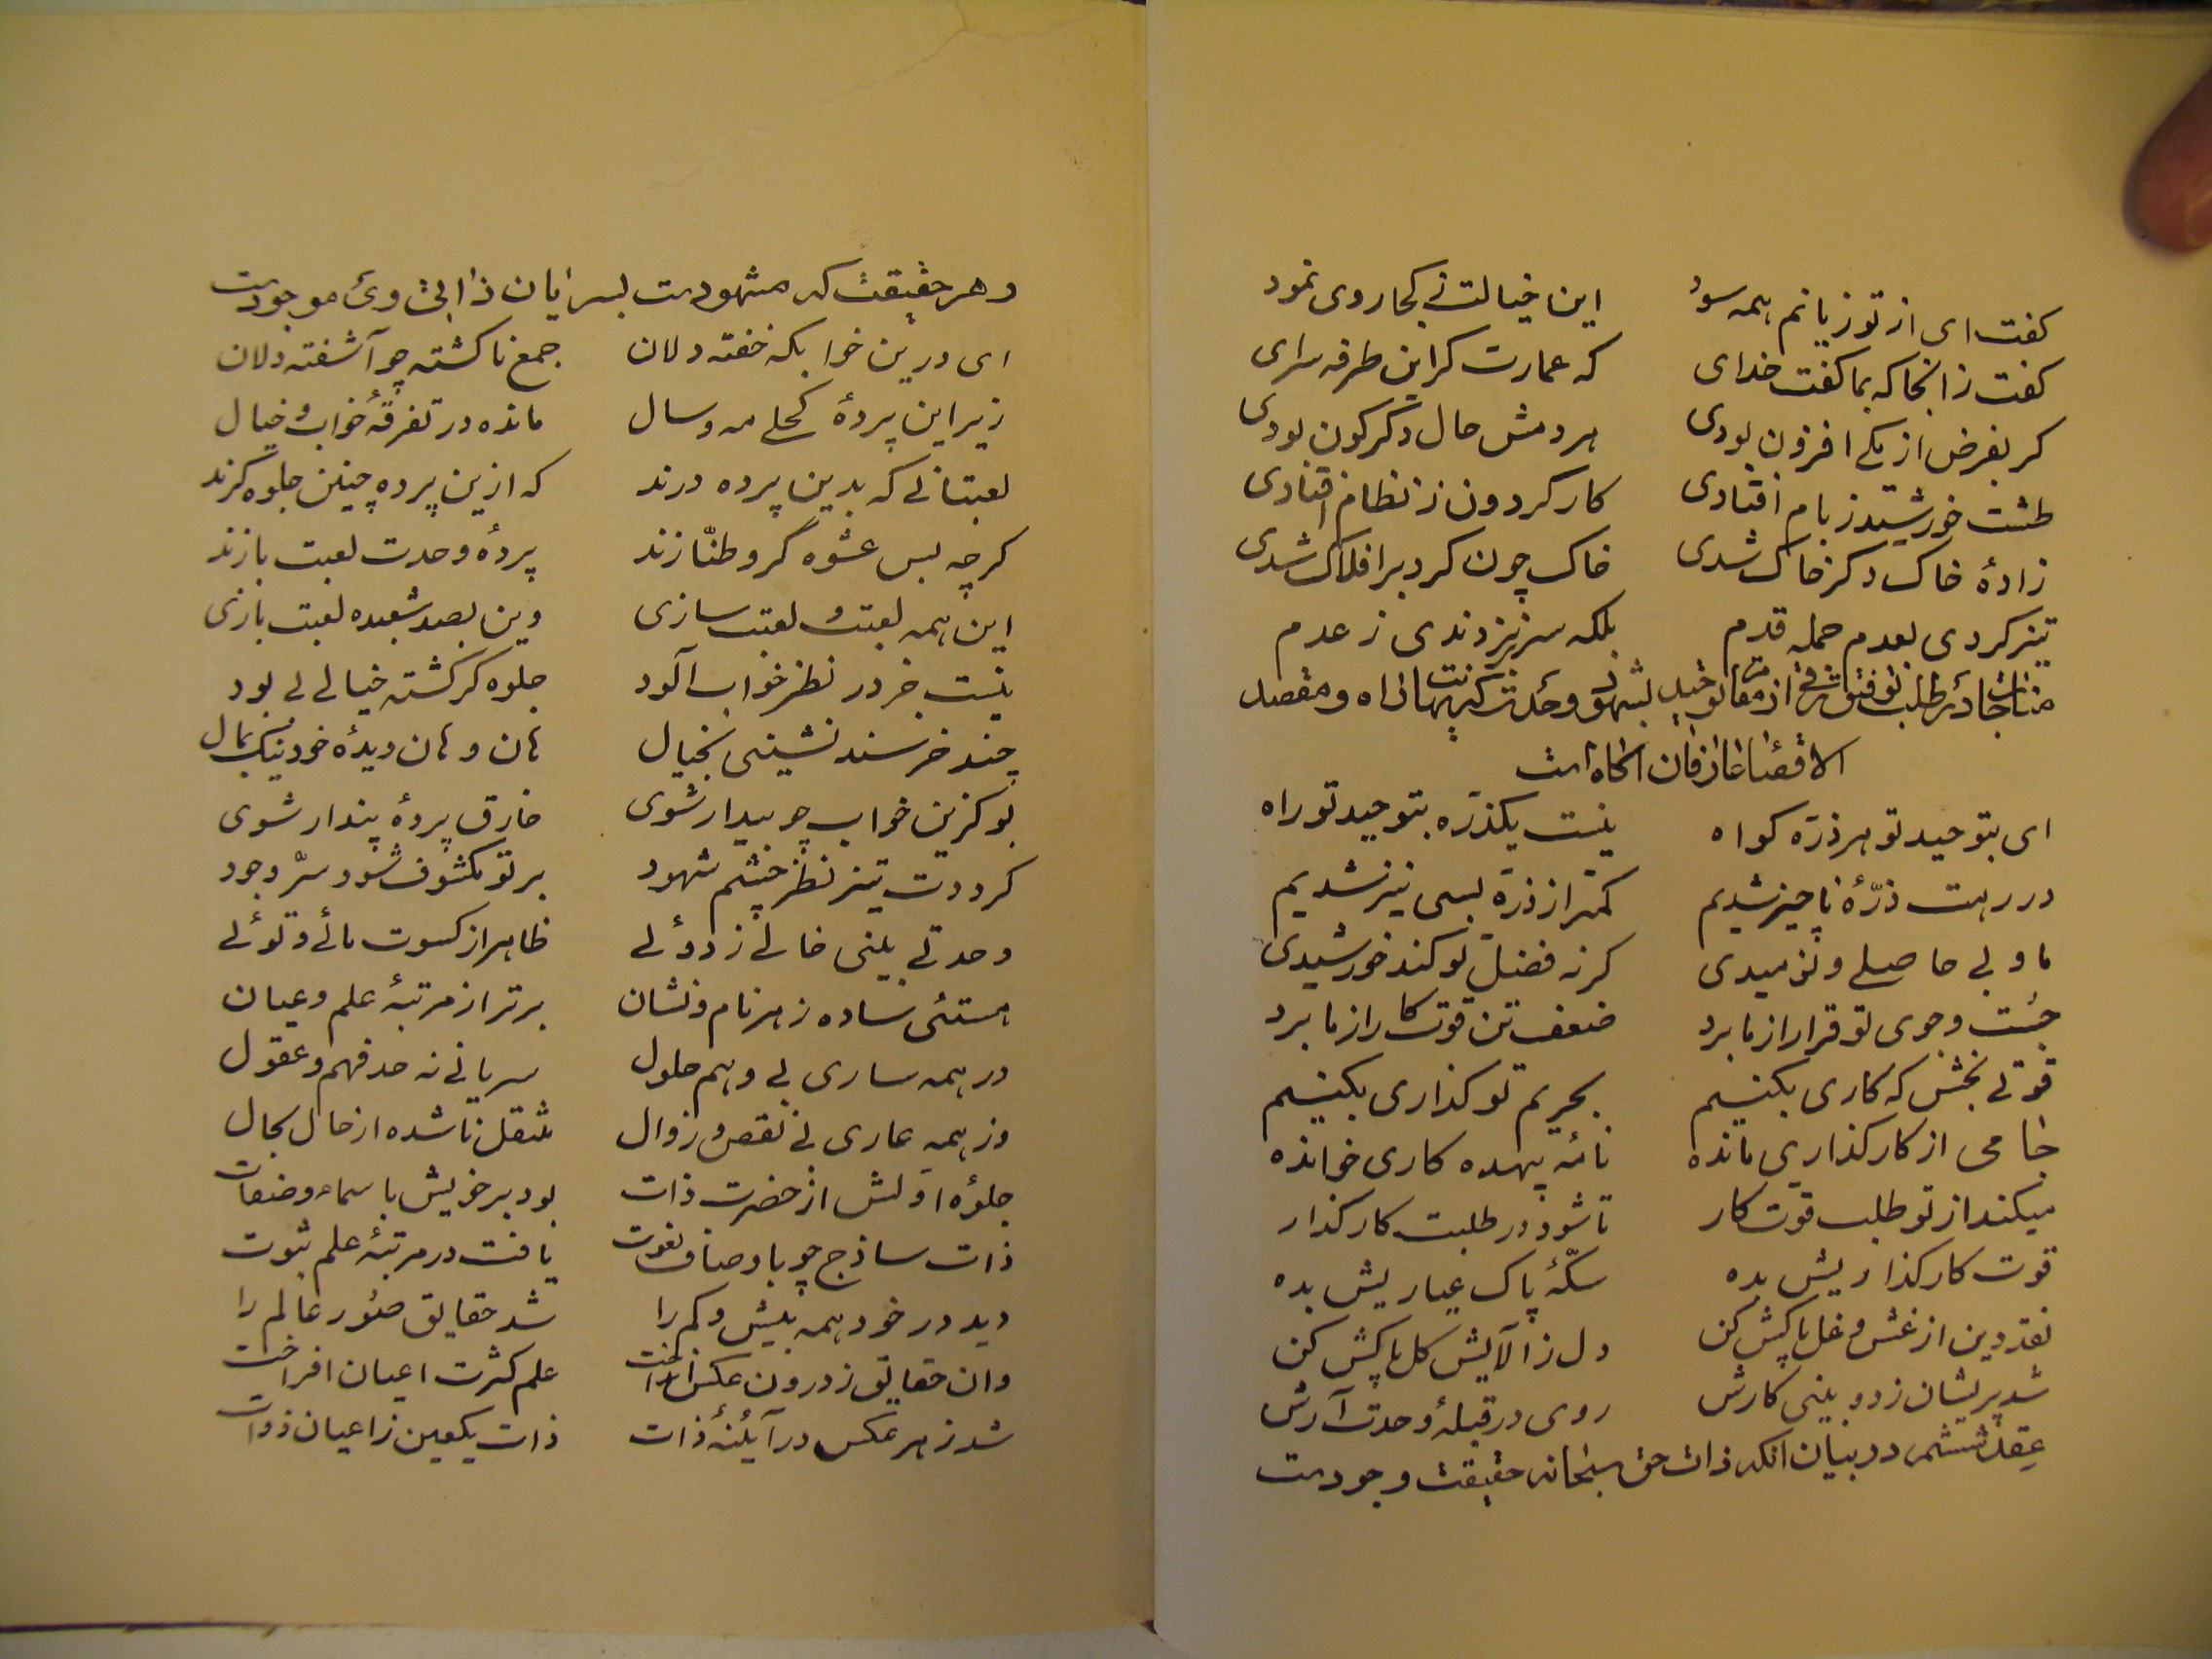 گفت ای از تو زیانم همه سود این خیالت ز کجا روی نمود
گفت زانجا که بما گفت خدای که عمارت گر این طرفه سرای
گر بفرض از یکی افزون بودی هر دمش حال دگرگون بودی
طشت خورشید ز بام افتادی کار گردون ز نظام افتادی
زادهٔ خاک دگر خاک شدی خاک چون گرد بر افلاک شدی
تیز کردی بعدم حمله قدم بلکه سر بر نزدندی ز عدم
مناجات در طلب توفیق ترقی از مقالو خیل بشهود وحدت که نهایت راه و مقصد
الاقصای عارفان آگاه است
ای بتوحید تو هر ذره گواه نیست یکذره بتوحید تو راه
در رهت ذرّهٔ ناچیز شدیم کمتر از ذره بسی نیز شدیم
ما و بی حاصلی و نومیدی گر نه فضل تو کند خورشیدی
جست و جوی تو قرار از ما برد ضعف تن قوت کار از ما برد
قوتی بخش که کاری بکنیم بحریم تو گذاری بکنیم
جامی از کارگذاری مانده نامه بیهده کاری خوانده
میکند از تو طلب قوت کار تا شود در طلبت کارگذار
قوت کارگذاریش بده سکّهٔ پاک عیاریش بده
نقد دین از غش و غل پاکش کن دل ز آلایش گل پاکش کن
شد پریشان ز دو بینی کارش روی در قبلهٔ وحدت آرش
عقد ششم در بیان آنکه ذات حق سبحانه حقیقت وجودست
و هر حقیقت که مشهودست بسریان ذاتی وی موجودست
ای درین خوابگه خفته دلان جمع ناگشته چو آشفته دلان
زیر این پردهٔ کحلی مه و سال مانده در تفرقهٔ خواب و خیال
لعبتانی که بدین پرده درند که ازین پرده چنین جلوه گرند
گرچه بس عشوه گر و طنّازند پردهٔ وحدت لعبت بازند
این همه لعبت و لعبت سازی وین بصد شعبده لعبت بازی
نیست جز در نظر خواب آلود جلوه گر گشته خیالی بی بود
چند خرسند نشینی بخیال هان و هان دیدهٔ خود نیک بمال
بو کزین خواب چو بیدار شوی خارق پردهٔ پندار شوی
گرددت تیز نظر چشم شهود بر تو مکشوف شود سرّ وجود
وحدتی بینی خالی ز دوئی ظاهر از کسوت مائی و توئی
هستئی ساده ز هر نام و نشان برتر از مرتبهٔ علم و عیان
در همه ساری بی وهم حلول سریانی نه حد فهم و عقول
وز همه عاری نی نقص و زوال منتقل ناشده از حال بحال
جلوهٔ اولش از حضرت ذات بود بر خویش باسماء و صفات
ذات ساذج چو باوصاف و نعوت یافت در مرتبهٔ علم ثبوت
دید در خود همه بیش و کم را شد حقایق صور عالم را
وان حقایق ز درون عکس انداخت علم کثرت اعیان افراخت
شد ز هر عکس در آیینهٔ ذات ذات یکعین ز اعیان ذوات